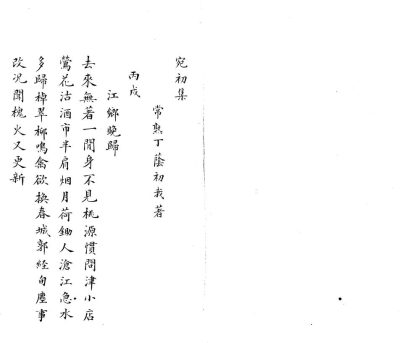 宛初集
常熟丁蔭初我著
丙戌
江鄉晚歸
去來無著一閒身不見桃源慣問津小店
鶯花沽酒市半肩烟月荷鋤人滄江急水
多歸棹翠柳鳴禽欲換春城郭經旬塵事
改況聞槐火又更新